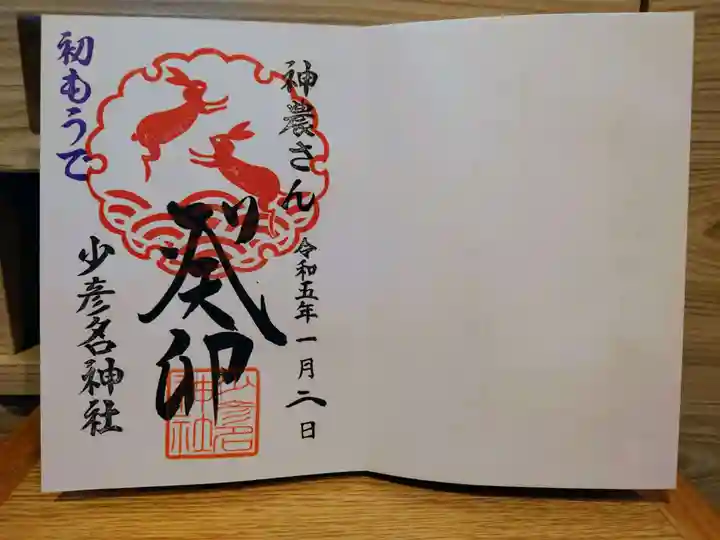 神農さん
令和五年一月二日
癸卯
少彦名神社
初もうで
少彦名
神社